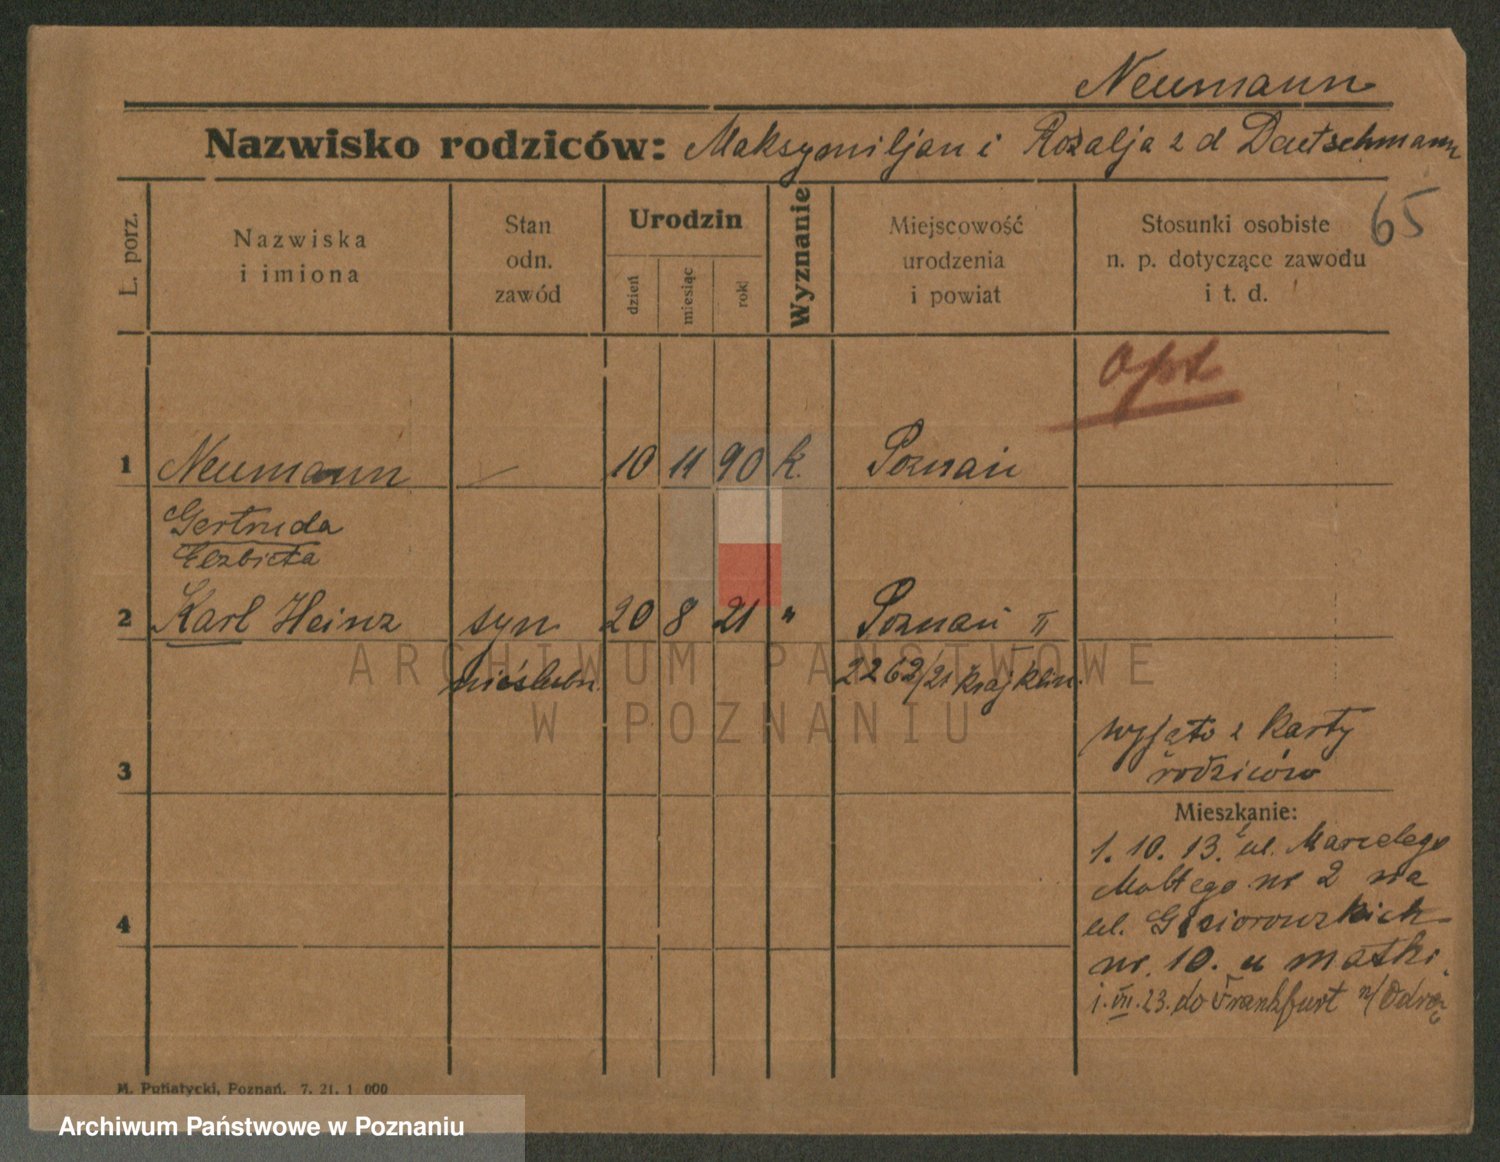 Neumann
Nazwisko rodziców: Maksymiljan i Rozalja z d Dautschmann
65
L. porz.
Nazwiska
i imiona
Stan
odn.
zawód
Urodzin
dzień
miesiąc
rok
Wyznanie
Miejscowość
urodzenia
i powiat
Stosunki osobiste
n. p. dotyczące zawodu
i t. d.
Opt
1 Neumann 10 11 90 k. Poznań
Gertruda
Elzbieta
2 Karl Heinz syn 20 8 21 " Poznań II
nieślubn. 2262/21 kraj klin.
wyjęto z karty
rodziców
3
Mieszkanie:
1. 10. 13. z ul. Marcelego
Mottego nr 2 na
ul. Gąsiorowskich
nr. 10. u matki.
1. VII. 23. do Frankfurt n/Odrą
4
M. Putiatycki, Poznań. 7. 21. 1 000
ARCHIWUM PAŃSTWOWE
W POZNANIU
Archiwum Państwowe w Poznaniu